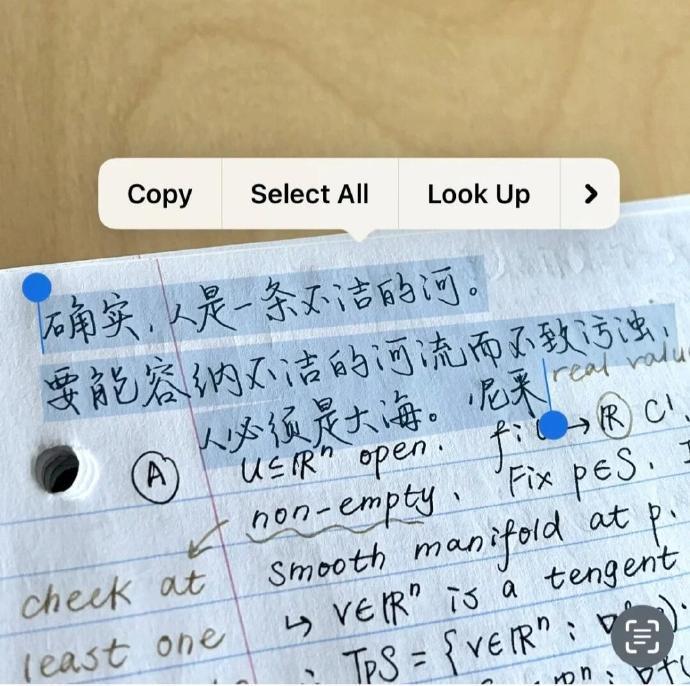 Copy Select All Look Up
确实,人是一条不洁的河。
要能容纳不洁的河流而不致污浊,
人必须是大海。 尼采
real valu
Ⓐ U⊆ℝⁿ open. f: → ℝ C¹.
non-empty. Fix p∈S.
Smooth manifold at p.
check at ↳ v∈ℝⁿ is a tengent
least one TpS = {v∈ℝⁿ :